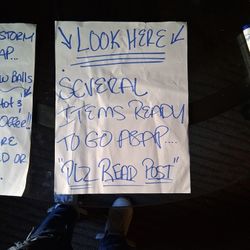 STORM
AP...
W BALLS
HOT &
OFFER!!
ARE
D OR
LOOK HERE
SEVERAL
ITEMS READY
TO GO ASAP....
"PLZ READ POST"